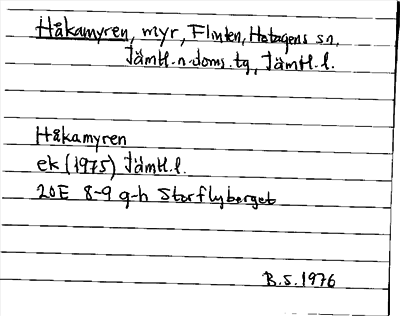 Håkamyren, myr, Flinten, Hotagens sn,
Jämtl.n.doms.tg, Jämtl.l.
Håkamyren
ek (1975) Jämtl.l.
20E 8-9 g-h Storflyberget
B.S. 1976